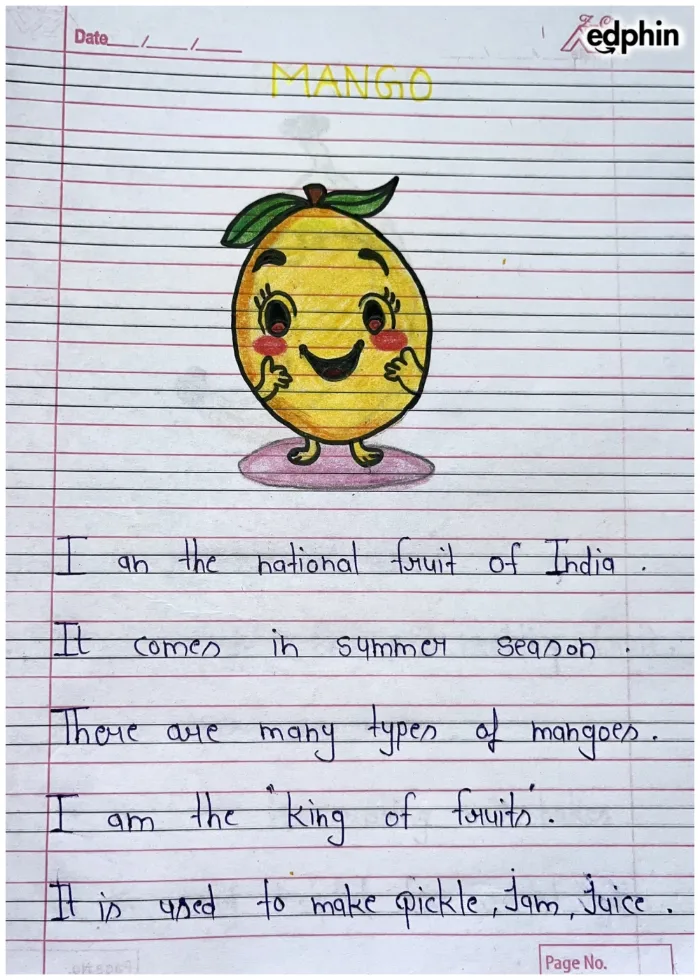 Date __/__/__
edphin
MANGO
I an the national fruit of India .
It comes in summer season .
There are many types of mangoes .
I am the "king of fruits".
It is used to make pickle, jam, juice .
Page No.